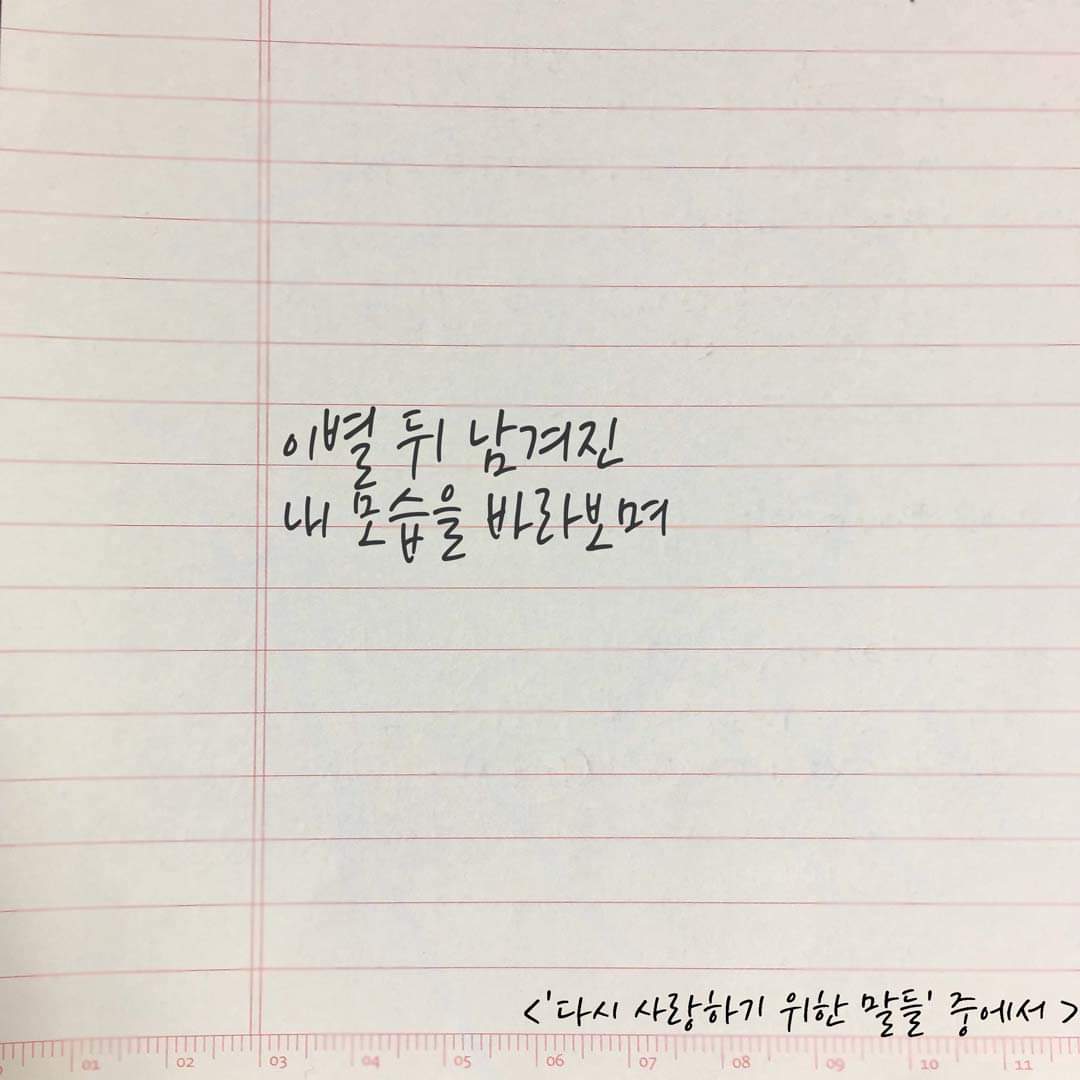 이별 뒤 남겨진
내 모습을 바라보며
<'다시 사랑하기 위한 말들' 중에서 >
01 02 03 04 05 06 07 08 09 10 11